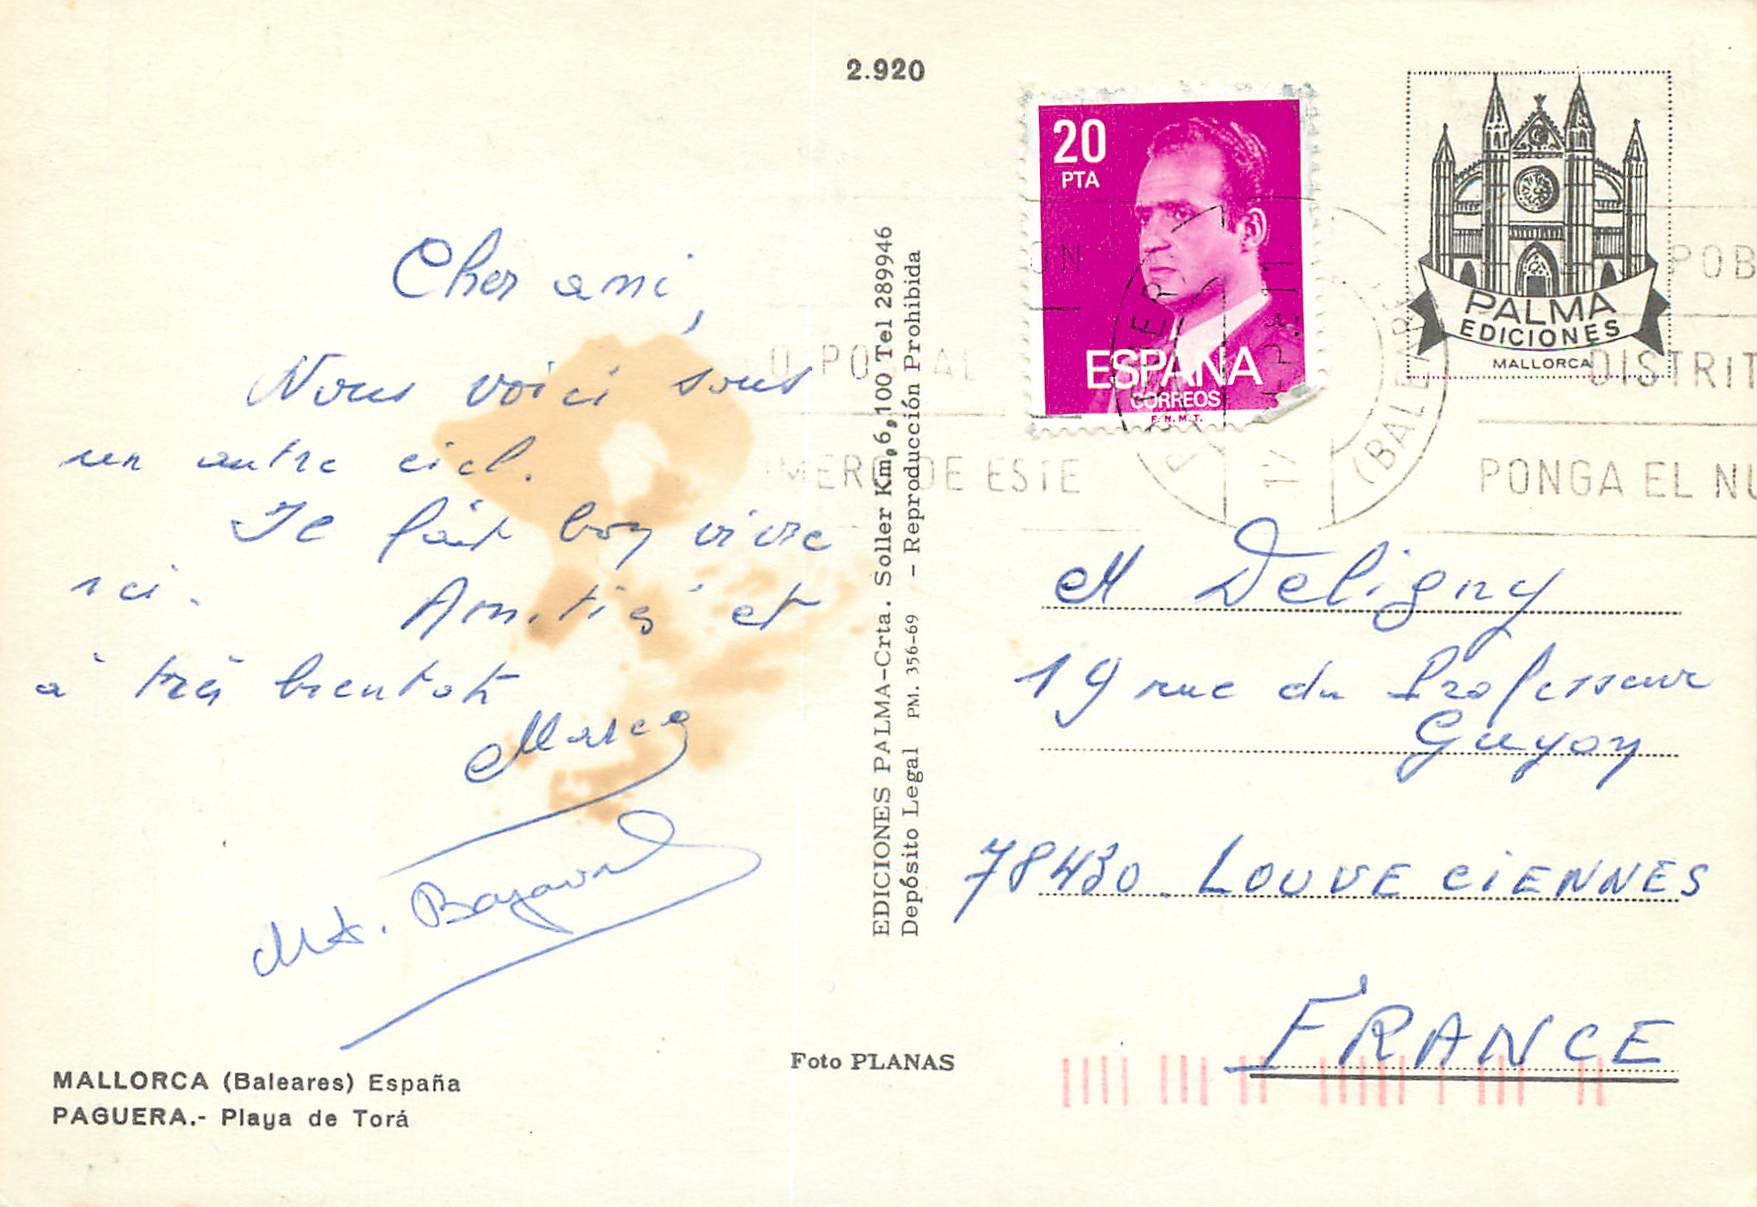 2.920
Cher ami,
Nous voici sous
un autre ciel.
Il fait bon vivre
ici. Amitié et
à très bientôt
MALLORCA (Baleares) España
PAGUERA.- Playa de Torá
Foto PLANAS
EDICIONES PALMA-Crta. Soller Km, 6,100 Tel 289946
Depósito Legal PM. 356-69 - Reproducción Prohibida
20
PTA
ESPAÑA
CORREOS
F.N.M.T.
PALMA
EDICIONES
MALLORCA
POB
DISTRIT
PONGA EL NU
MERO DE ESTE
(BALEARES
M Deligny
19 rue du Professeur
Guyon
78430. LOUVECIENNES
FRANCE